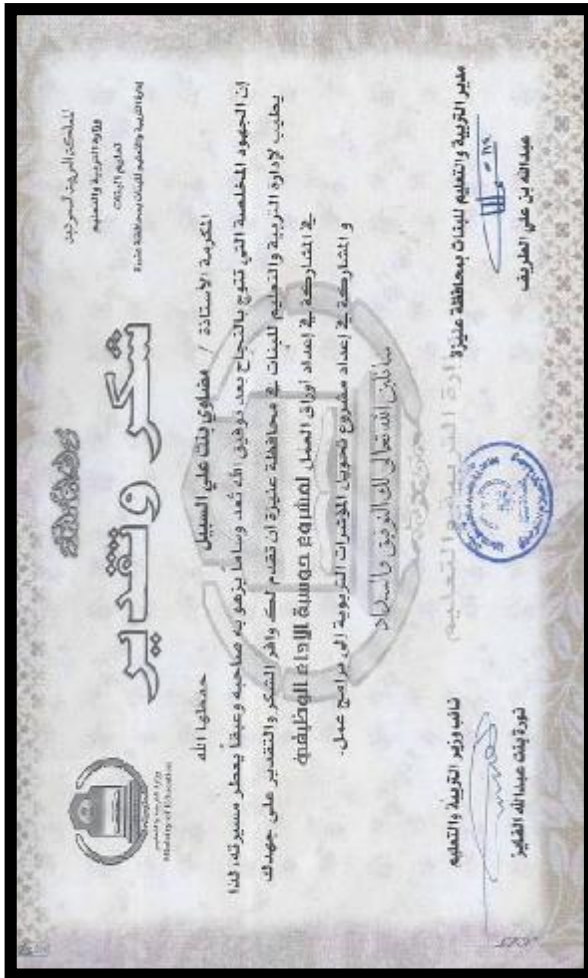 المملكة العربية السعودية
وزارة التربية والتعليم
تعليم البنات
إدارة التربية والتعليم للبنات بمحافظة عنيزة
وزارة التربية والتعليم
Ministry of Education
شكر وتقدير
المكرمة الأستاذة / مضاوي بنت علي السبيل حفظها الله
إن الجهود المخلصة التي تتوج بالنجاح بعد توفيق الله تُعد وساماً يزهو به صاحبه وعبقاً يعطر مسيرته، لذا
يطيب لإدارة التربية والتعليم للبنات في محافظة عنيزة أن تقدم لك وافر الشكر والتقدير على جهدك
في المشاركة في إعداد أوراق العمل لمشروع حوسبة الأداء الوظيفي
و المشاركة في إعداد مشروع تحويل المؤشرات التربوية إلى برامج عمل.
سائلين الله تعالى لك التوفيق والسداد
نائب وزير التربية والتعليم
نورة بنت عبدالله الفايز
مدير التربية والتعليم للبنات بمحافظة عنيزة
عبدالله بن علي الطريف